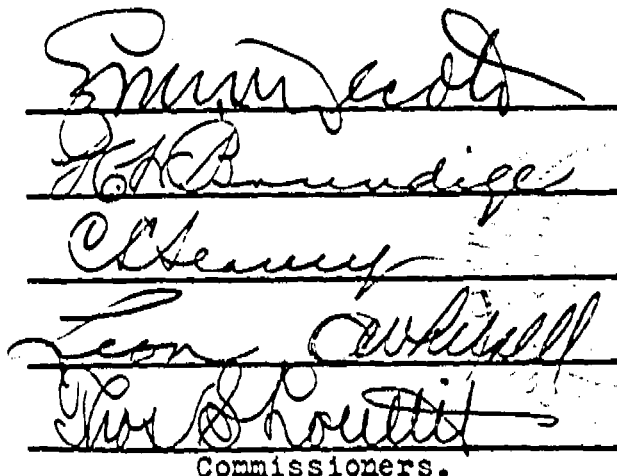 Decoto
Brundige
C L Seavey
Leon O Whitsell
Thos S Louttit
Commissioners.